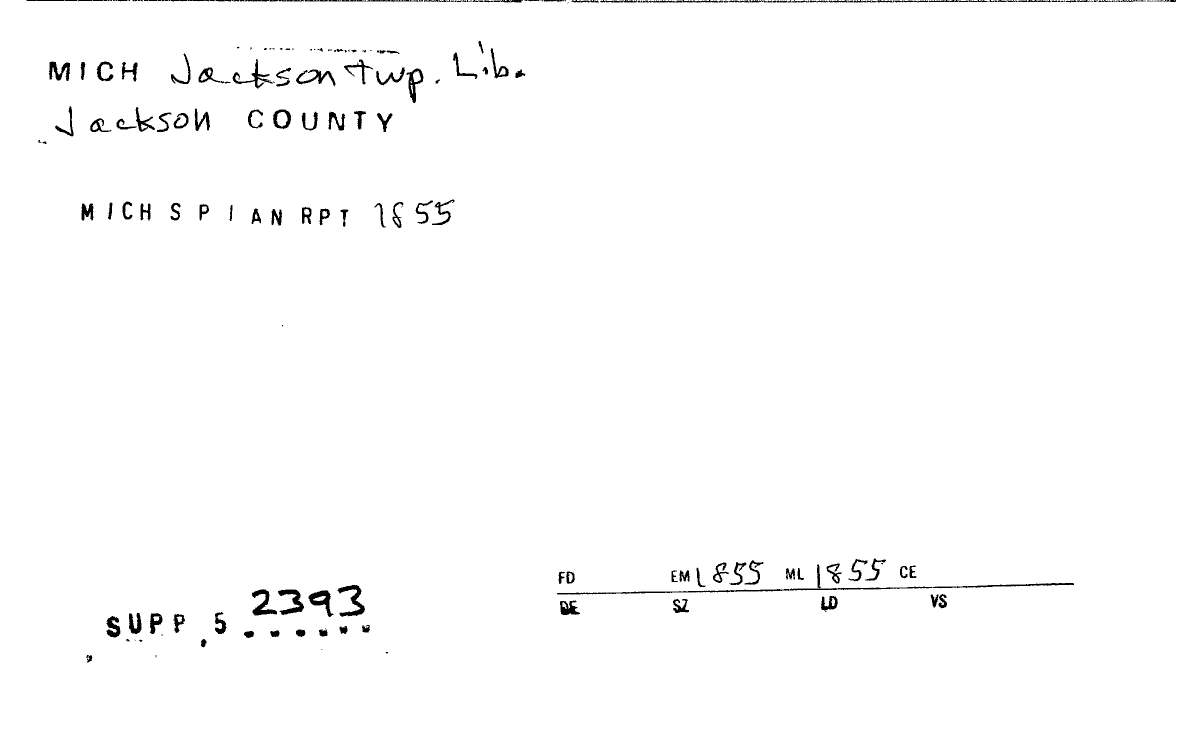 MICH Jackson twp. Lib.
Jackson COUNTY
MICH S P I AN RPT 1855
SUPP. 5 2393
FD EM 1855 ML 1855 CE
DE SZ LD VS